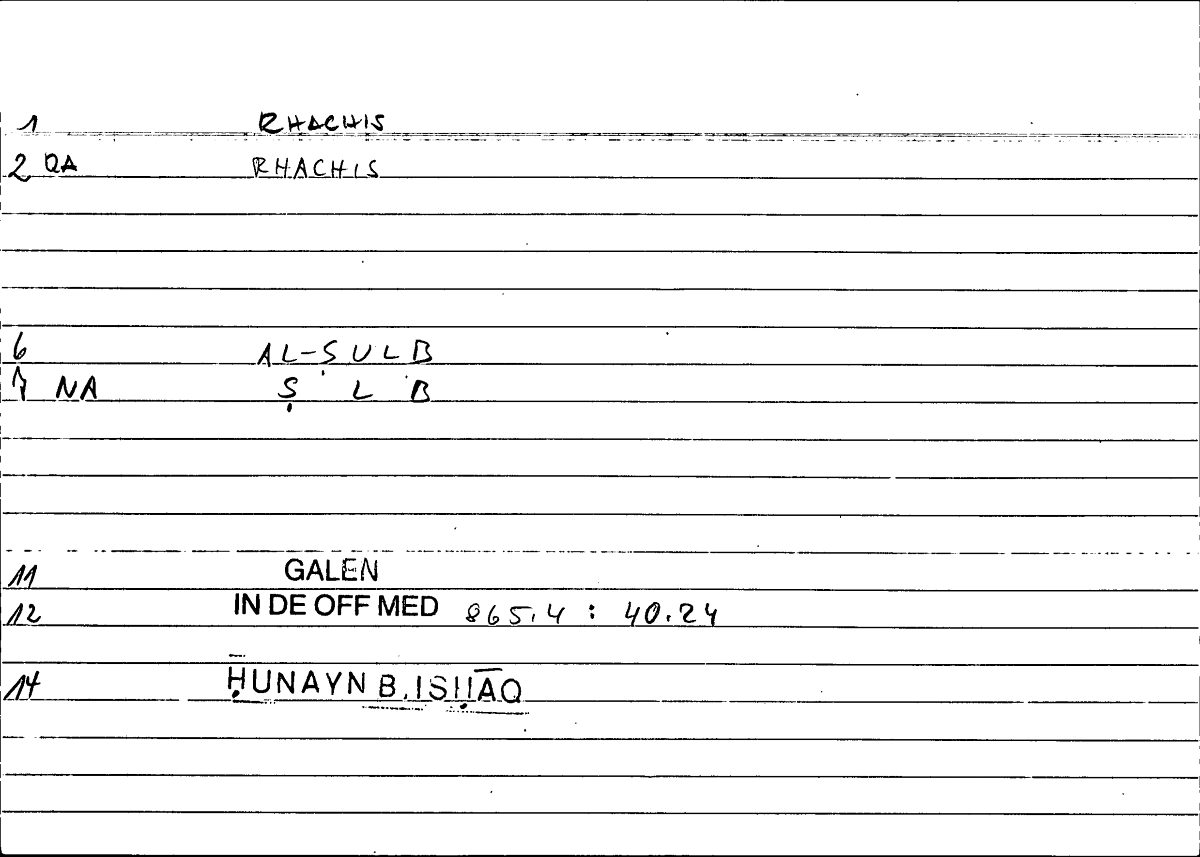 1 RHACHIS
2 QA RHACHIS
6 AL-ṢULB
7 NA Ṣ L B
11 GALEN
12 IN DE OFF MED 865.4 : 40.24
14 ḤUNAYN B. ISḤĀQ